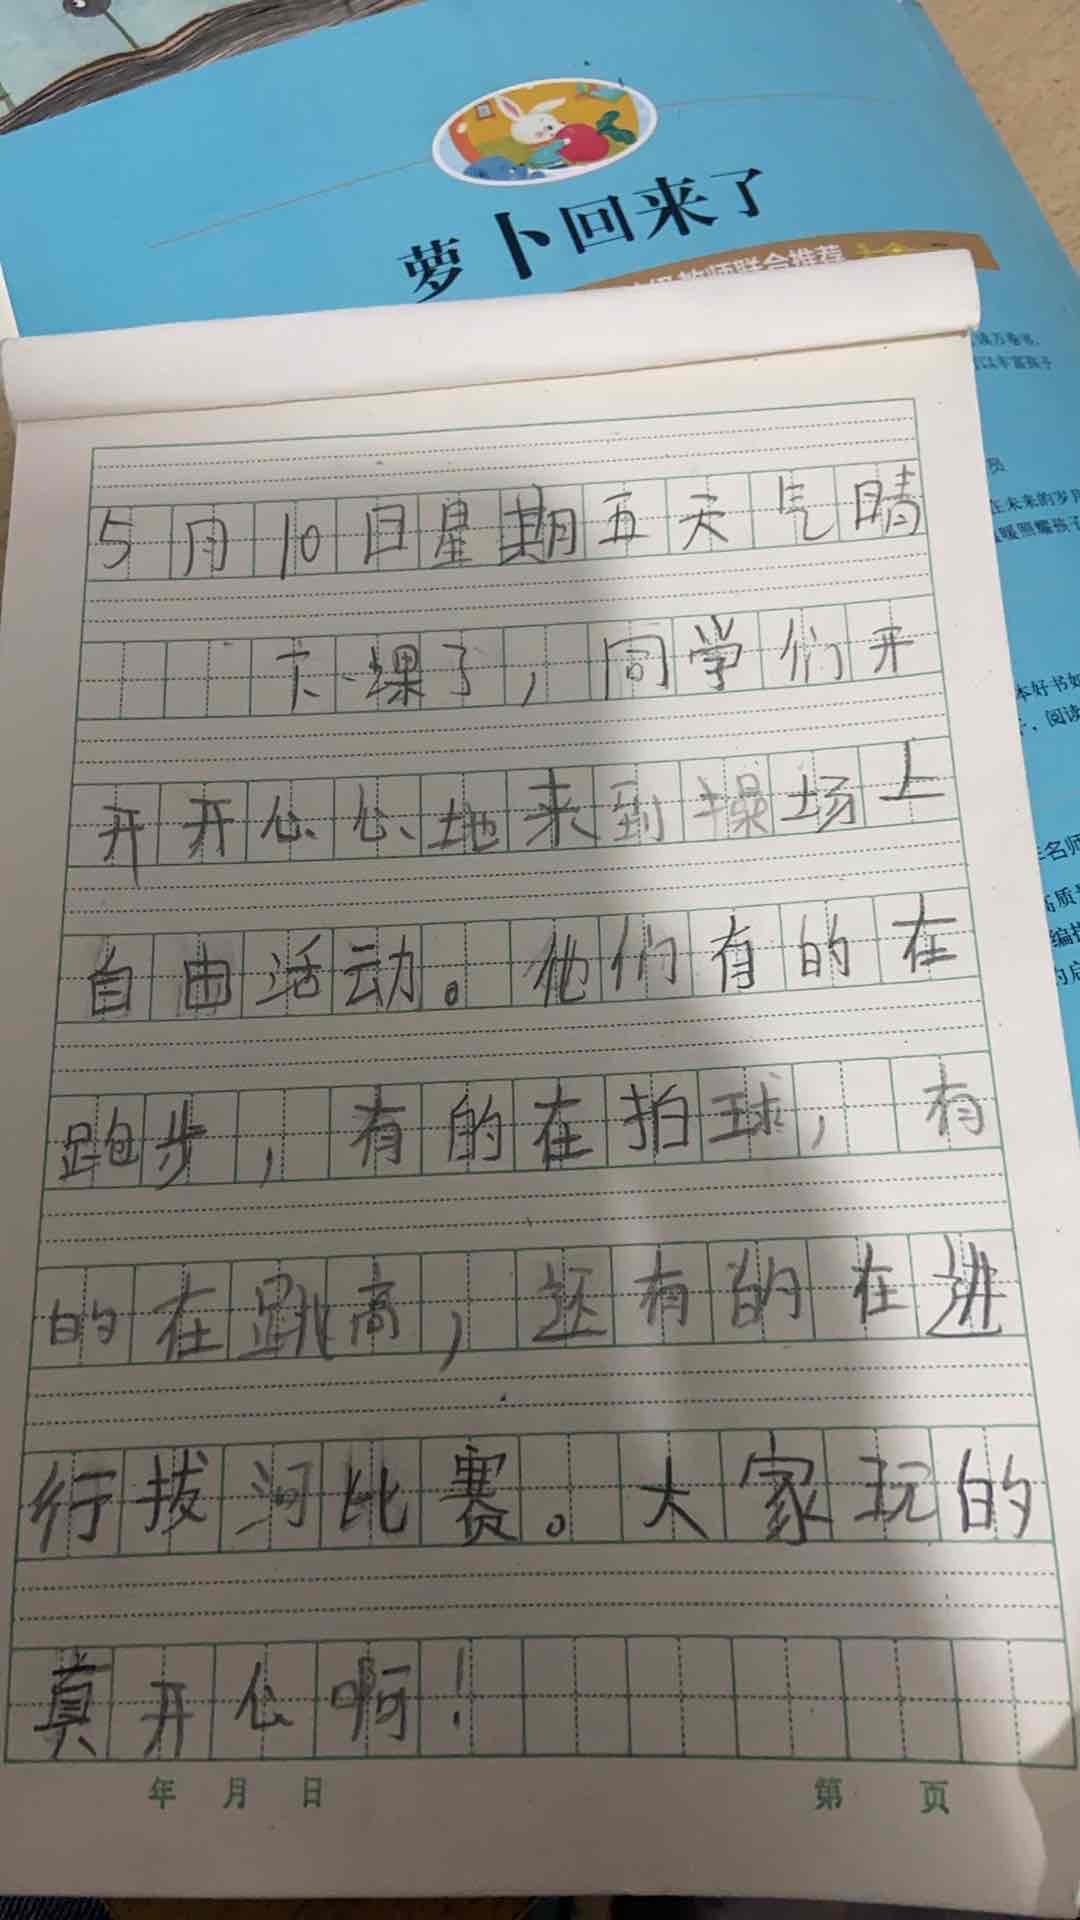 萝卜回来了
级教师联合推荐
5月10日星期五天气晴
下课了，同学们开
开开心心地来到操场上
自由活动。他们有的在
跑步，有的在拍球，有
的在跳高，还有的在进
行拔河比赛。大家玩的
真开心啊！
年 月 日
第 页